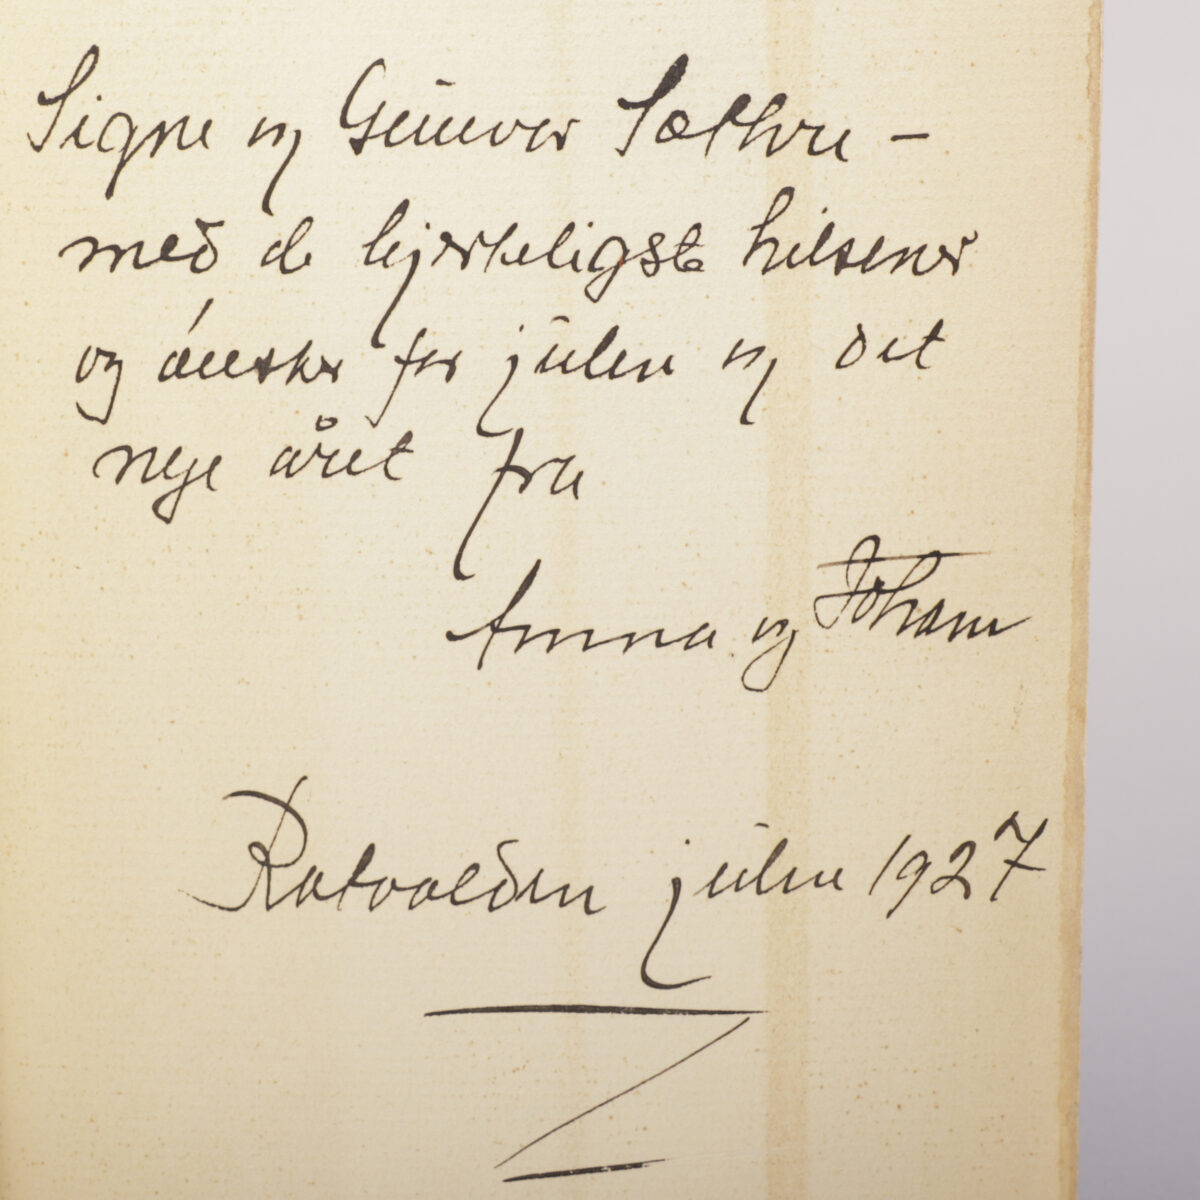 Signe og Gunvor Sæthre –
med de hjerteligste hilsener
og ønsker for julen og det
nye året fra
Anna og Johan
Ratvolden julen 1927